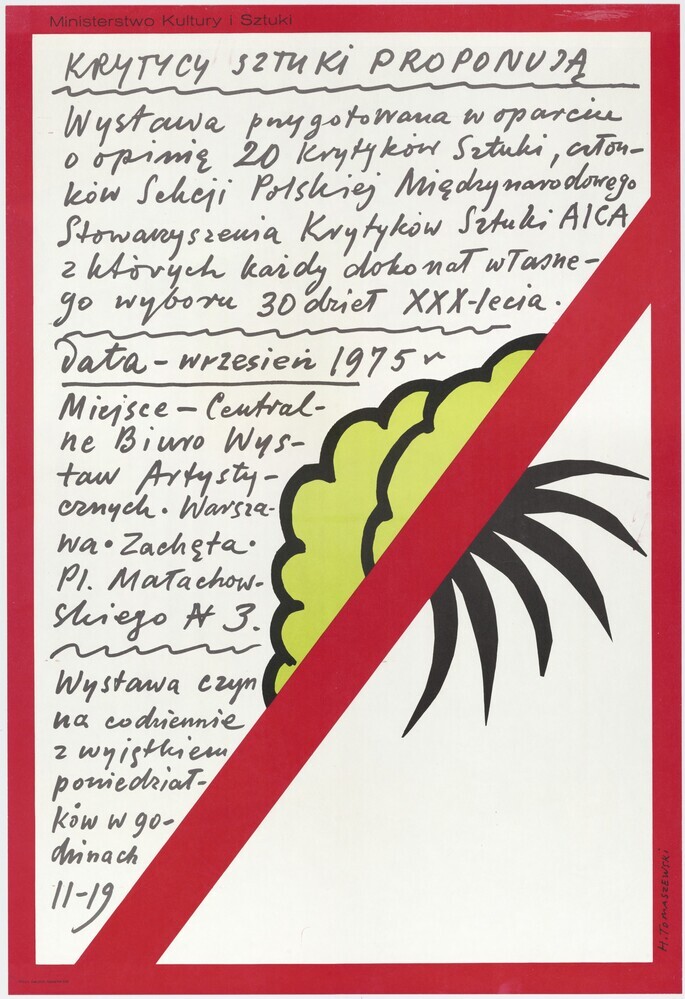 Ministerstwo Kultury i Sztuki
KRYTYCY SZTUKI PROPONUJĄ
Wystawa przygotowana w oparciu
o opinię 20 Krytyków Sztuki, człon-
ków Sekcji Polskiej Międzynarodowego
Stowarzyszenia Krytyków Sztuki AICA
z których każdy dokonał własne-
go wyboru 30 dzieł XXX-lecia.
Data - wrzesień 1975 r
Miejsce - Central-
ne Biuro Wys-
taw Artysty-
cznych • Warsza-
wa • Zachęta •
Pl. Małachow-
skiego N 3.
Wystawa czyn
na codziennie
z wyjątkiem
poniedział-
ków w go-
dzinach
11-19
H. TOMASZEWSKI